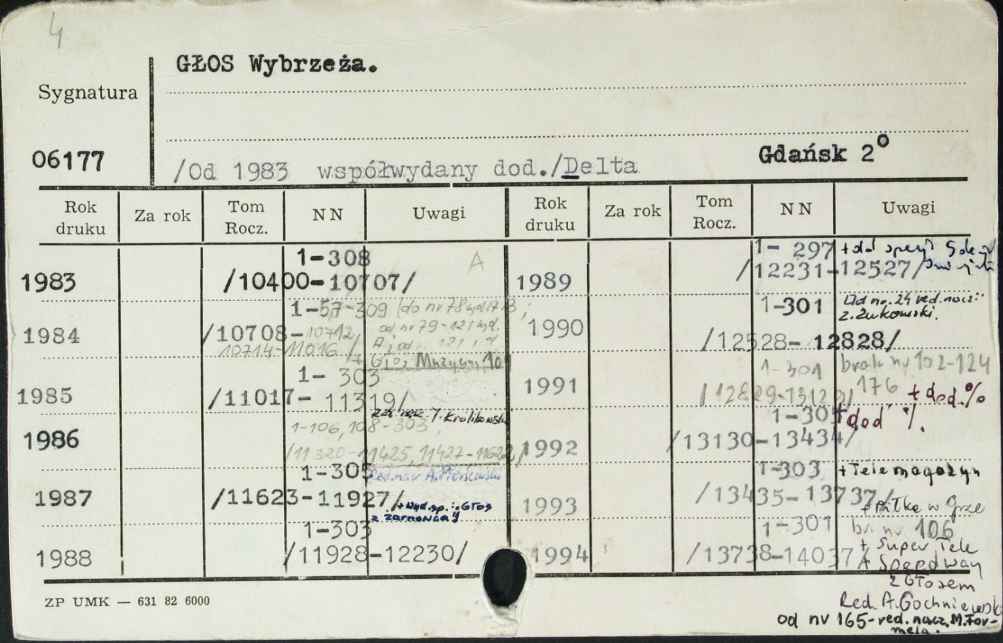 4
GŁOS Wybrzeża.
Sygnatura
06177
/Od 1983 współwydany dod./Delta
Gdańsk 2°
Rok druku Za rok Tom Rocz. NN Uwagi Rok druku Za rok Tom Rocz. NN Uwagi
1983 1-308 /10400-10707/ A
1984 /10708- 10712, 10714-11016/
1985 1-303 /11017-11319/
1986 1-106, 108-303, /11320-11425, 11427-11622/
1987 1-305 /11623-11927/ +wyd.sp.: Głos z Żarnowca
1988 1-303 /11928-12230/
1989 1-297 /12231-12527/ +dod
1990 1-301 /12528-12828/ Od nr. 24 red. nacz.: Z. Żukowski.
1991 1-301 brak nr 102-124 176 +dod.%
1992 /13130-13434/ +dod %.
1993 1-303 /13435-13737/ +Telemagazyn
1994 1-301 /13738-14037/ br. nr 106
+ Super Tele
+ Speedway
z Głosem
Red. A. Gochniewski
od nr 165-red. nacz. M. Formela.
ZP UMK — 631 82 6000